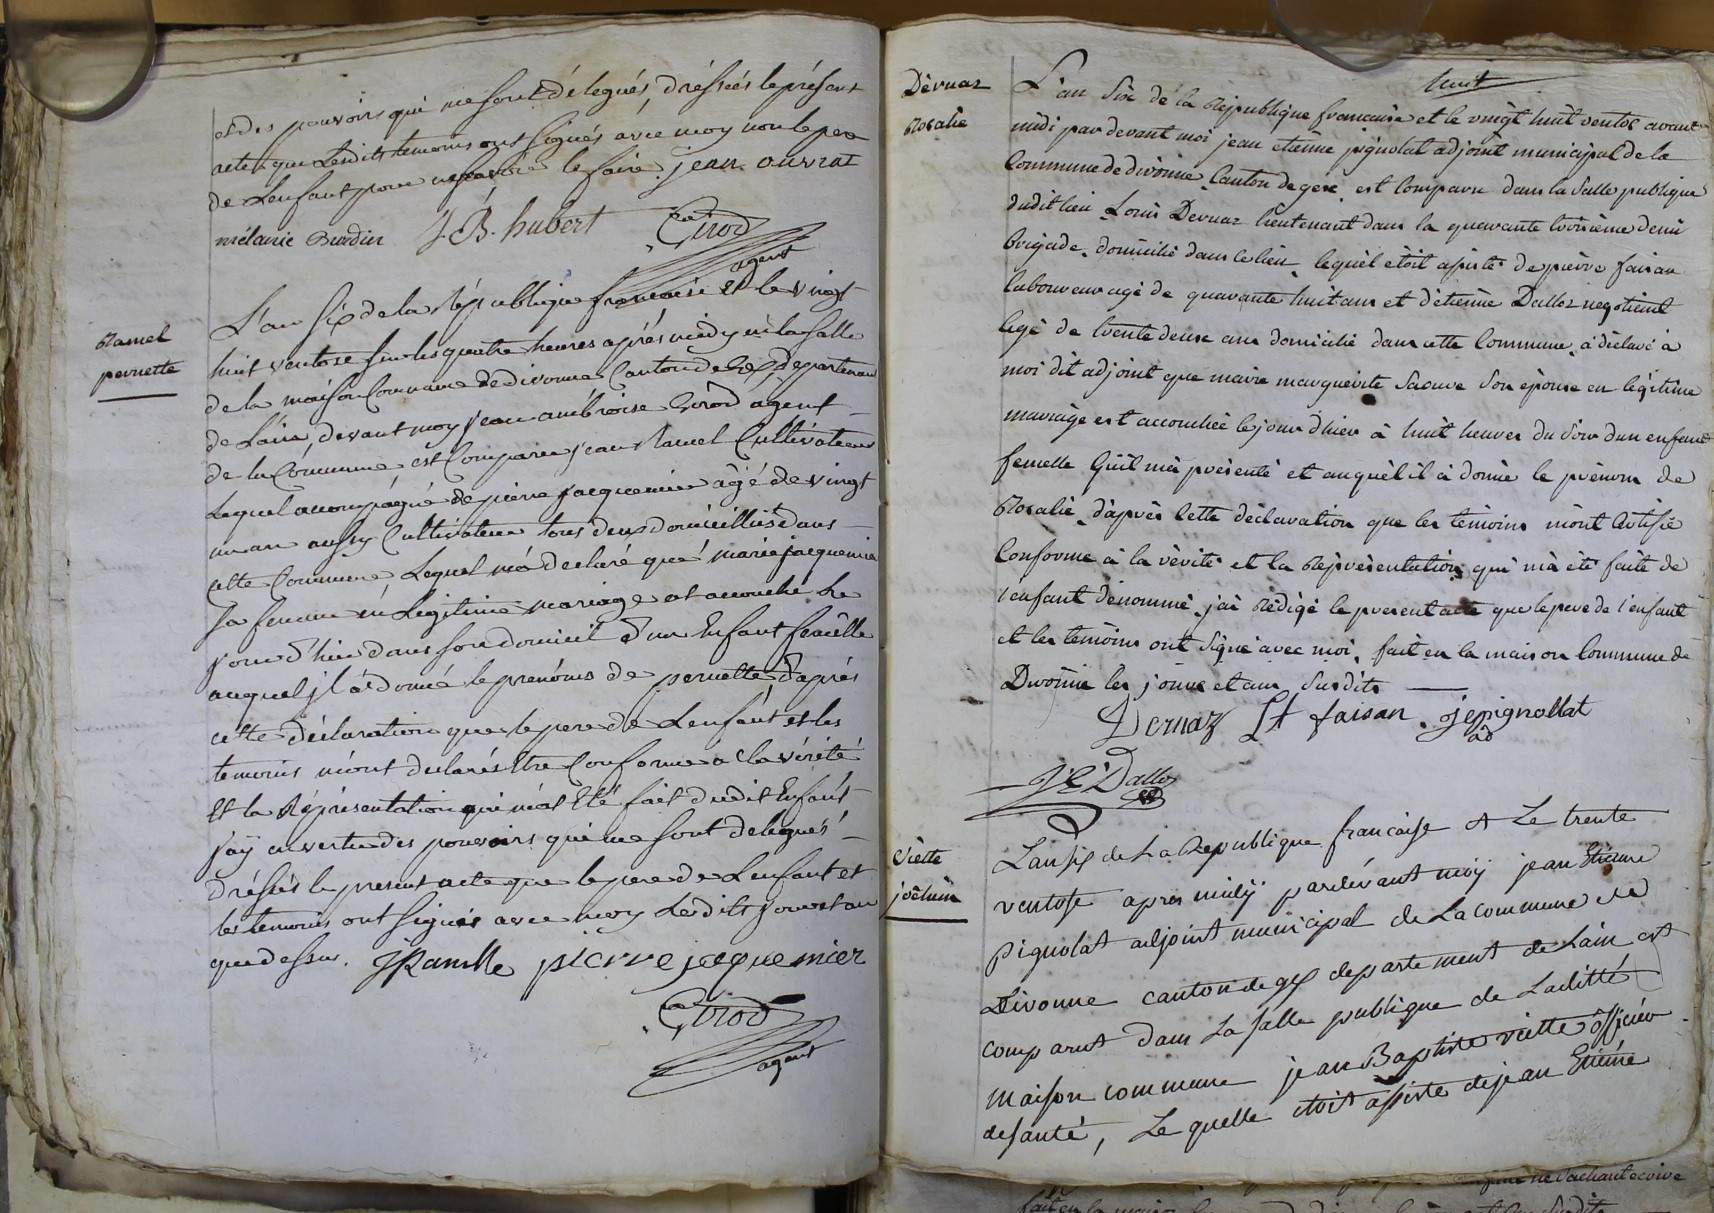 et des pouvoirs qui me sont délegués, dréssés le présent
acte que Lesdits temoins ont signés avec moy non le pere
de L'enfant pour ne savoir le faire jean ouvrat
mélanie Burdin J. B. hubert Girod
agent
Ramel
pernette
L'an six de la République francaise et le vingt
huit ventose sur les quatre heures aprés midy en la salle
de la maison Commune de divonne Canton de Gex, departement
de L'ain, devant moy jean ambroise Girod agent
de la Commune est Comparu jean Ramel Cultivateur
Lequel accompagné de pierre jacquemier âgé de vingt
un an aussy Cultivateur tous deux domicilliés dans
cette Commune Lequel m'à declaré que marie jacquemier
sa femme en Légitime mariage est accouché Le
jour d'hier dans son domicil d'un Enfant femêlle
auquel jl à donné le prenoms de pernette, d'aprés
cette déclaration que le pere de L'enfant et les
temoins m'ont declarés Etre Conforme à la vérité
Et la Réprésentation qui m'at Eté fait dudit Enfant
j'ay en vertu des pouvoirs qui me sont delegués
dréssés le present acte que le pere de L'enfant et
les temoins ont signés avec moy Lesdits jour et an
que dessus. JRamelle pierre jaquemier
Girod
agent
huit
Dernaz
Rosalie
L'an Six de la République francaise et le vingt huit ventos avant
midi par devant moi jean etienne pignolat adjoint municipal de la
Commune de divonne Canton de gex est Comparu dans la Salle publique
dudit lieu Louis Dernaz lieutenant dans la quarante troisième demi
brigade domicilié dans le lieu lequel étoit assisté de pierre faisan
laboureur agé de quarante huit ans et d'étienne Dalloz negotient
agé de trente deux ans domicilié dans cette Commune à déclaré à
moi dit adjoint que marie marguerite Son épouse en légitime
mariage est accouchée le jour d'hier à huit heures du Soir d'un enfant
femelle Qu'il m'à présenté et auquel il à donné le prénom de
Rosalie d'après Cette déclaration que les témoins m'ont Certifié
Conforme à la vérité et la Réprésentation qui m'à été faite de
l'enfant dénommé j'ai Rédigé le present acte que le pere de l'enfant
et les temoins ont Signé avec moi, fait en la maison Commune de
Divonne les jours et ans Susdits
Dernaz Lt faisan jepignollat
ad
J E Dalloz
Viette
L'an six de La Republique francaise et Le trente
ventose apres midÿ pardevant moÿ jean Etienne
Pignolat adjoint municipal de La commune de
Divonne canton de gex departement de Lain est
comparut dans La salle publique de Laditte
maison commune jean Baptiste viette officier
de santé, Le quelle etoit assisté de jean Etienne